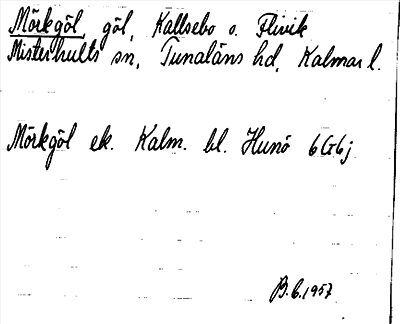 Mörkgöl, göl, Kallsebo o. Flivik
Misterhults sn, Tunaläns hd, Kalmar l.
Mörkgöl ek. Kalm. bl. Hunö 6G6j
B.E.1957